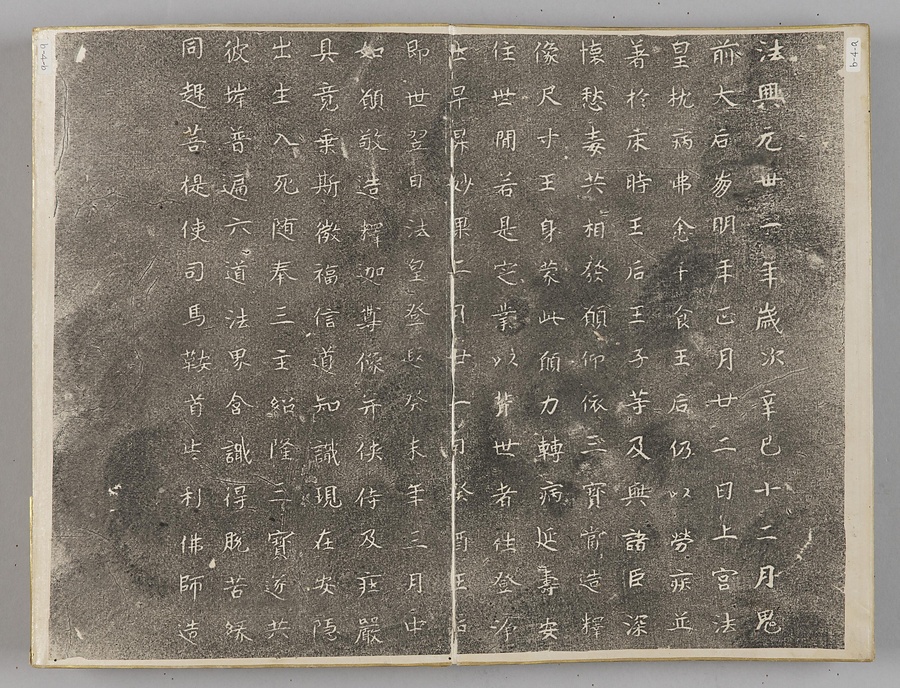 法興元丗一年歳次辛巳十二月鬼
前大后崩明年正月廿二日上宮法
皇枕病弗悆干食王后仍以勞疾並
著於床時王后王子等及與諸臣深
懐愁毒共相發願仰依三寳當造釋
像尺寸王身蒙此願力轉病延壽安
住世間若是定業以背世者往登浄
土早昇妙果二月廿一日癸酉王后
即世翌日法皇登遐癸未年三月中
如願敬造釋迦尊像并侠侍及荘嚴
具竟乗斯微福信道知識現在安隠
出生入死随奉三主紹隆三寳遂共
彼岸普遍六道法界含識得脱苦縁
同趣菩提使司馬鞍首止利佛師造
b-4-a
b-4-b